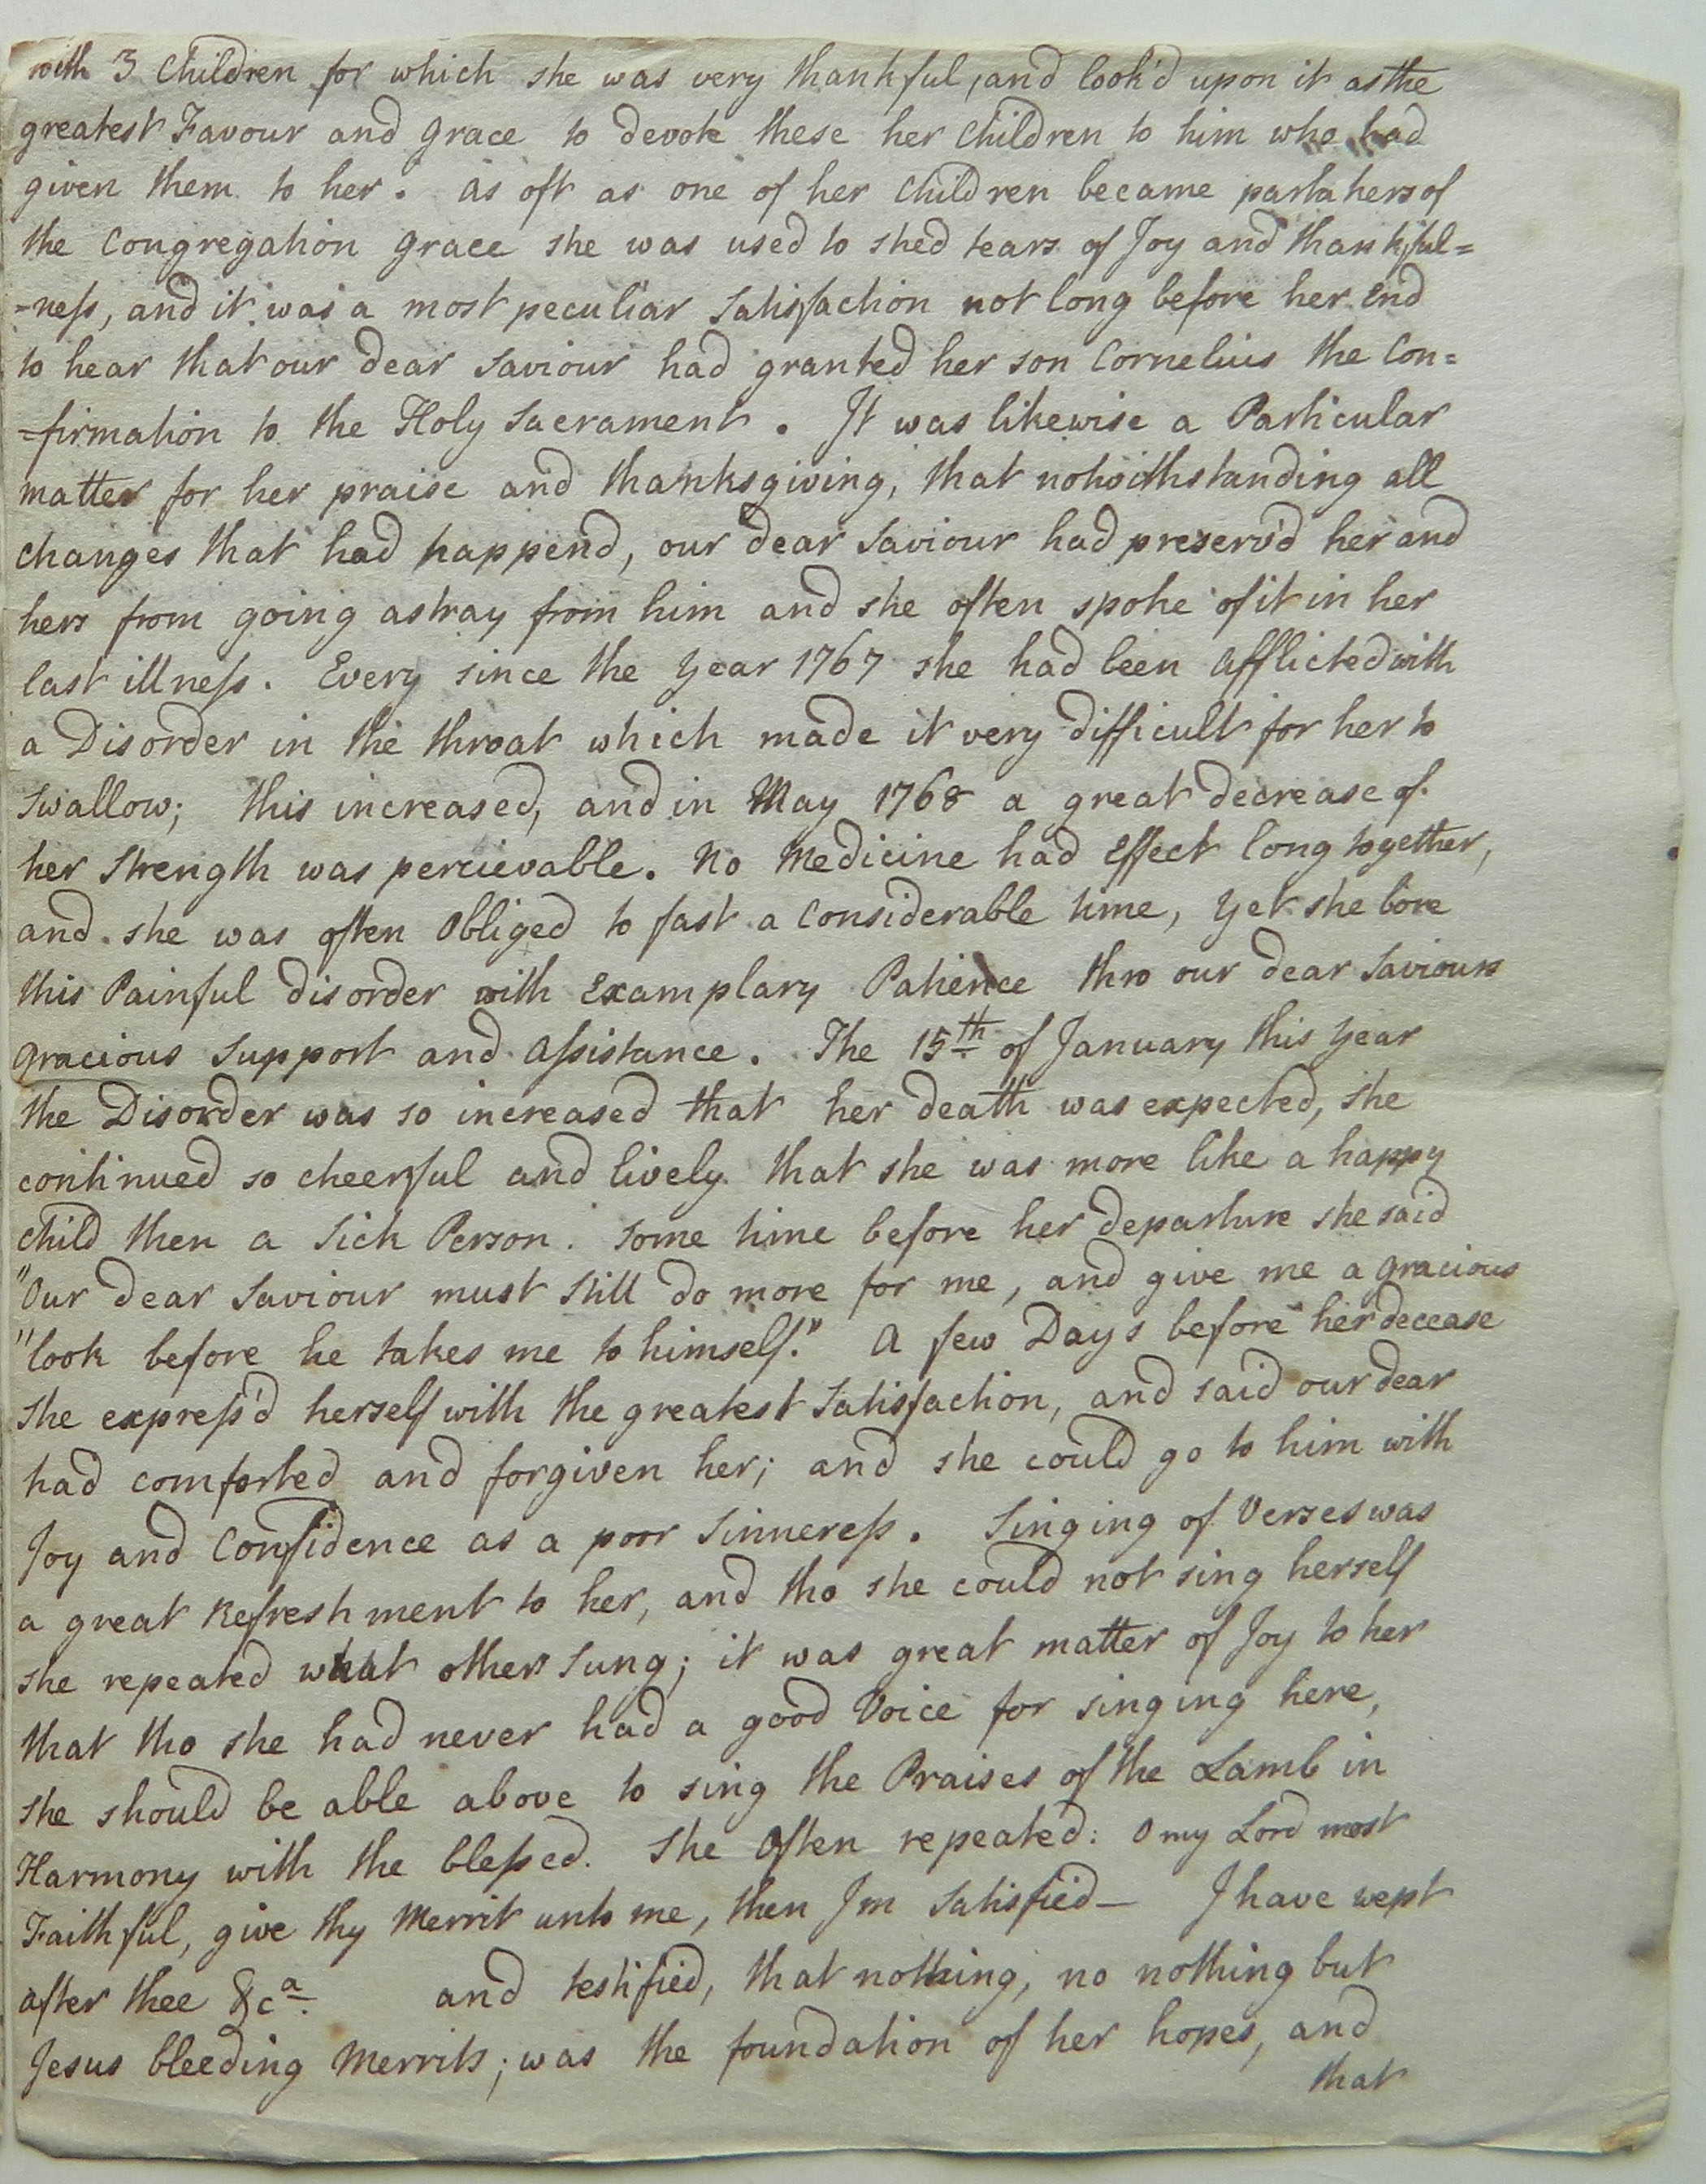 with 3 Children for which she was very thankful, and look'd upon it as the
greatest Favour and Grace to devote these her Children to him who had
given them to her. As oft as one of her Children became partakers of
the Congregation Grace she was used to shed tears of Joy and thankful=
=neſs, and it was a most peculiar Satisfaction not long before her End
to hear that our dear Saviour had granted her son Cornelius the Con=
=firmation to the Holy Sacrament. It was likewise a Particular
matter for her praise and thanksgiving, that notwithstanding all
Changes that had happend, our dear Saviour had preserv'd her and
hers from going astray from him and she often spoke of it in her
last illneſs. Every since the Year 1767 she had been afflicted with
a Disorder in the throat which made it very difficult for her to
Swallow; this increased, and in May 1768 a great decrease of
her Strength was percievable. No Medicine had Effect long together,
and she was often Obliged to fast a Considerable time, Yet she bore
this Painful disorder with Examplary Patience thro our dear Saviours
gracious Support and Aſsistance. The 15th of January this Year
the Disorder was so increased that her death was expected, she
continued so cheerful and lively that she was more like a happy
Child then a Sick Person. Some time before her departure she said
"Our dear Saviour must Still do more for me, and give me a gracious
"look before he takes me to himself." A few Days before her decease
She expreſs'd herself with the greatest Satisfaction, and said our dear
had comforted and forgiven her; and she could go to him with
Joy and Confidence as a poor Sinnereſs. Singing of Verses was
a great Refreshment to her, and tho she could not sing herself
she repeated what others Sung; it was great matter of Joy to her
that tho she had never had a good Voice for singing here,
she should be able above to sing the Praises of the Lamb in
Harmony with the bleſsed. She Often repeated: O my Lord most
Faithful, give thy Merrit unto me, then I'm Satisfied— I have wept
after thee &ca. and testified, that nothing, no nothing but
Jesus bleeding Merrits; was the foundation of her hopes, and
that